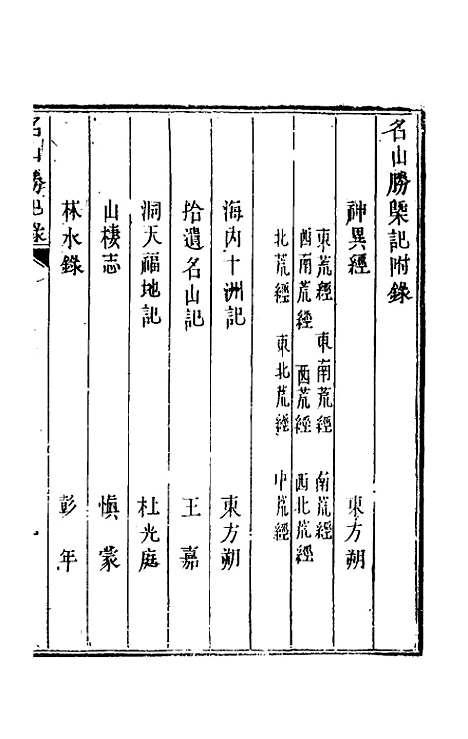 名山勝槩記附錄
神異經 東方朔
東荒經 東南荒經 南荒經
西南荒經 西荒經 西北荒經
北荒經 東北荒經 中荒經
海內十洲記 東方朔
拾遺名山記 王嘉
洞天福地記 杜光庭
山棲志 慎蒙
林水錄 彭年
名山勝記錄